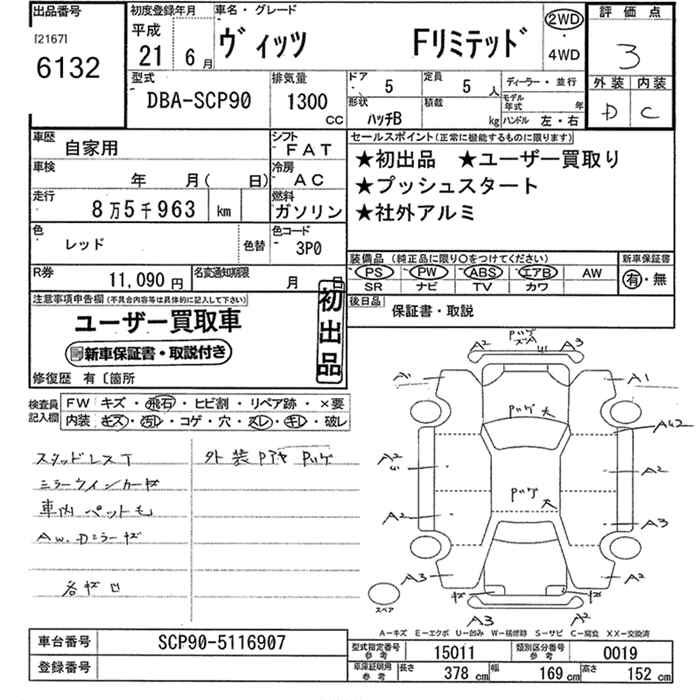 出品番号
[2167]
6132
初度登録年月
平成
21 6月
車名・グレード
ヴィッツ Fリミテッド
2WD
・
4WD
評価点
3
外装 内装
D C
型式
DBA-SCP90
排気量
1300
CC
ドア 5
定員 5 人
形状 ハッチB
積載 kg
ディーラー・並行
モデル年式 年
ハンドル 左・右
車歴 自家用
シフト FAT
車検 年 月( 日)
冷房 AC
走行 8万5千963 km
燃料 ガソリン
色 レッド 色替
色コード 3P0
セールスポイント(正常に機能するものに限ります)
★初出品 ★ユーザー買取り
★プッシュスタート
★社外アルミ
R券 11,090円
名変通知期限 月 日
装備品(純正品に限り○をつけてください)
PS PW ABS エアB AW
SR ナビ TV カワ
新車保証書
有・無
注意事項申告欄(不具合内容等は具体的に記入して下さい)
ユーザー買取車
新車保証書・取説付き
初出品
修復歴 有〔箇所
後日品 保証書・取説
検査員記入欄
FW キズ・飛石・ヒビ割・リペア跡・×要
内装 キズ・汚レ・コゲ・穴・スレ・キレ・破レ
スタッドレスT
ミラーウインカーキズ
車内 ペット毛
AW.Dミラーキズ
外装
A2 A3
A1 A1
A2 A2
A2 A3
A3 A2
A3 A2
スペア
A－キズ E－エクボ U－凹み W－補修跡 S－サビ C－腐食 XX－交換済
車台番号 SCP90-5116907
登録番号
型式指定番号 参考 15011
類別区分番号 参考 0019
車庫証明用 参考 長さ 378 cm 幅 169 cm 高さ 152 cm